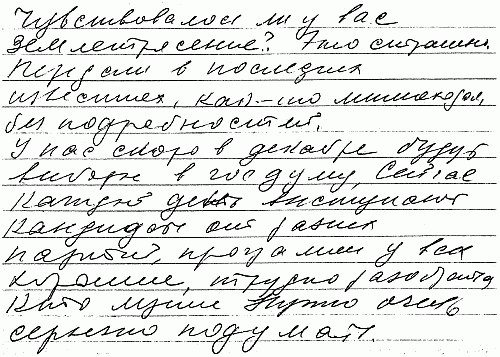 Чувствовалось ли у вас
землетрясение? Это страшно.
Передали в последних
известиях, как-то мимоходом,
без подробностей.
У нас скоро в декабре будут
выборы в госдуму, Сейчас
каждый день выступают
кандидаты от разных
партий, программы у всех
хорошие, трудно разобраться
Кто лучше Нужно очень
серьезно подумать.